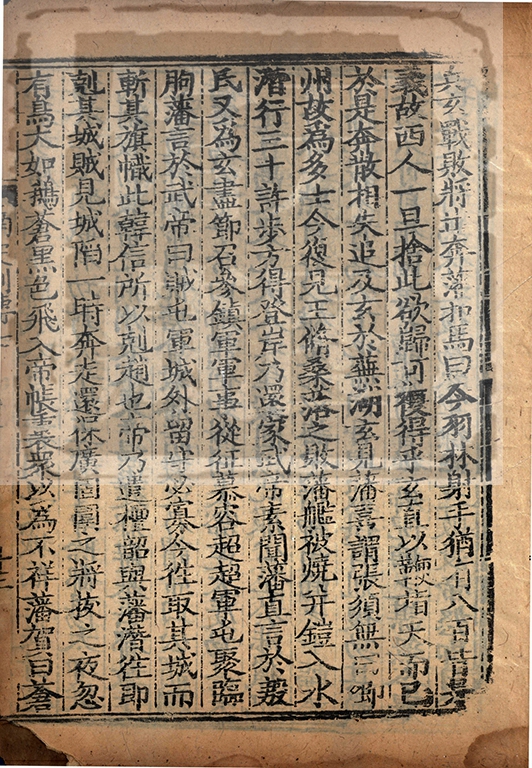 兵玄戰敗將出奔藩扣馬曰今羽林射手猶有八百皆是
義故西人一旦捨此欲歸可復得乎玄直以鞭指天而已
於是奔散相失追及玄於蕪湖玄見藩喜謂張須無曰卿
州故為多士今復見王脩桑落之敗藩艦被燒并鎧入水
潛行三十許步方得登岸乃還家武帝素聞藩直言於殷
氏又為玄盡節石參鎮軍軍事從征慕容超超軍屯聚臨
朐藩言於武帝曰誠屯軍城外留守必寡今往取其城而
斬其旗幟此韓信所以剋趙也帝乃遣檀韶與藩潛往即
剋其城賊見城陷一時奔走還保廣固圍之將拔之夜忽
有鳥大如鵝蒼黑色飛入帝帳裏衆以為不祥藩賀曰蒼